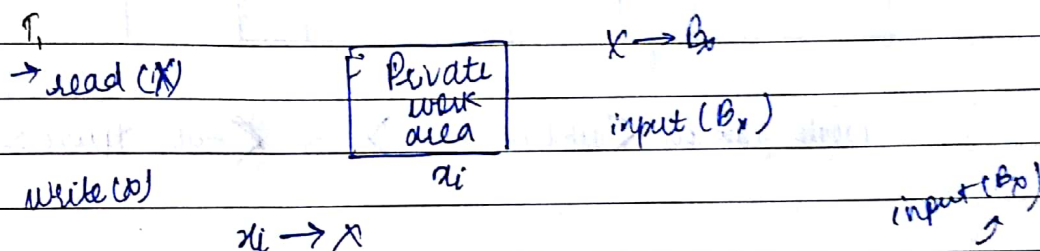 T₁
→ read (X)
Private
work
area
xᵢ
X → Bₓ
input (Bₓ)
write (x)
xᵢ → X
input (Bₓ)